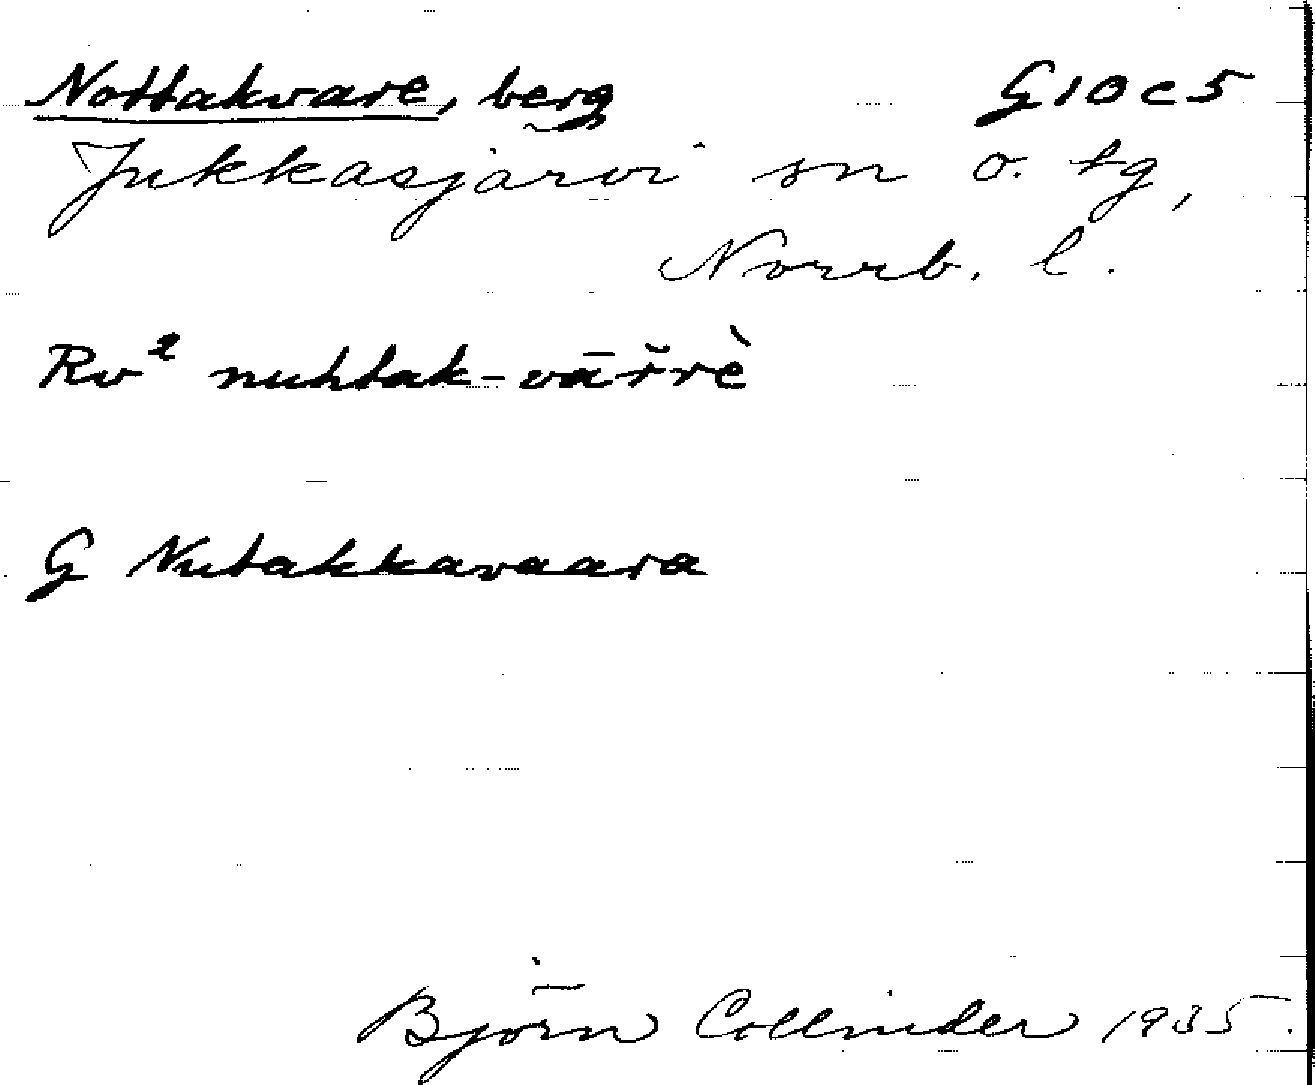 Nottakvare, berg G10c5
Jukkasjärvi sn o. tg,
Norrb. l.
Rv² nuhtak-vāřrè
G Nutakkavaara
Björn Collinder 1935.